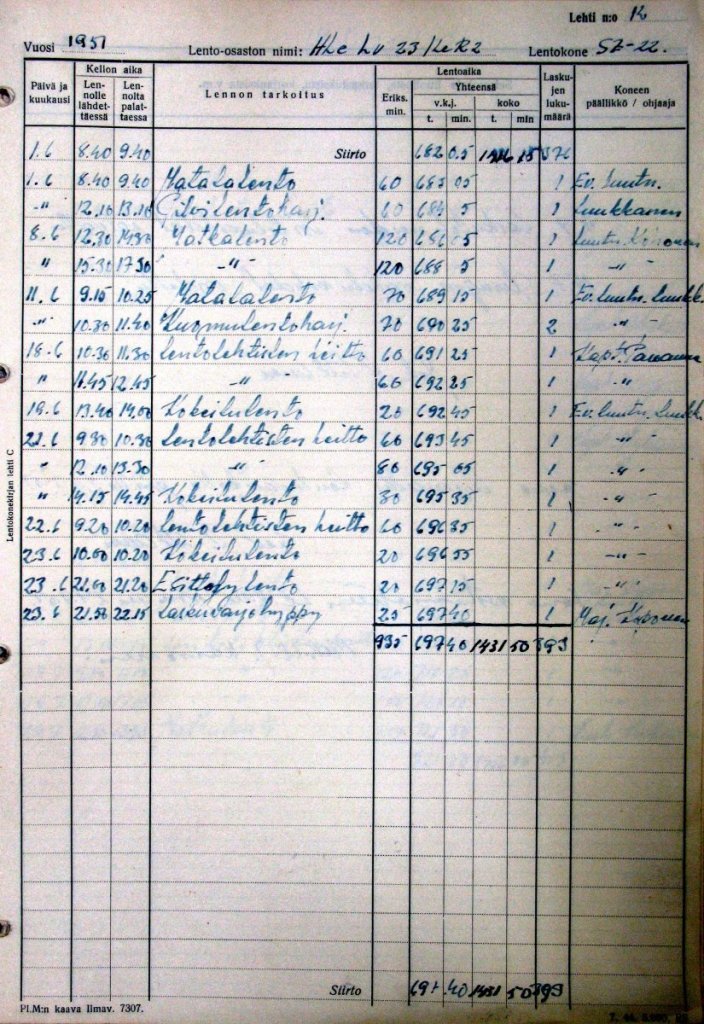 Lehti n:o
Vuosi 1951 Lento-osaston nimi: HLeLv Lentokone SZ-22.
Päivä ja kuukausi Kellon aika Lennolle lähdettäessä Lennolta palattaessa Lennon tarkoitus Lentoaika Eriks. min. Yhteensä v.k.j. t. min. koko t. min Laskujen lukumäärä Koneen päällikkö / ohjaaja
1.6 8.40 9.40 Siirto 682 05 15 376
1.6 8.40 9.40 Matalalento 60 683 05 1 Ev. luutn.
-"- 12.10 13.10 60 684 5 1 Luukkanen
8.6 12.30 14.30 Matkalento 120 686 05 1 Luutn.
" 15.30 17.30 -"- 120 688 5 1 -"-
11.6 9.15 10.25 Matalalento 70 689 15 1 Ev. luutn. Luukk.
-"- 10.30 11.40 70 690 25 2 -"-
18.6 10.30 11.30 Lentolehtisten heitto 60 691 25 1 Kapt.
" 11.45 12.45 -"- 60 692 25 1 -"-
19.6 13.40 14.00 Kokeilulento 20 692 45 1 Ev. luutn. Luukk.
21.6 9.30 10.30 Lentolehtisten heitto 60 693 45 1 -"-
" 12.10 13.30 -"- 80 695 05 1 -"-
" 14.15 14.45 Kokeilulento 30 695 35 1 -"-
22.6 9.20 10.20 Lentolehtisten heitto 60 696 35 1 -"-
23.6 10.00 10.20 Kokeilulento 20 696 55 1 -"-
23.6 21.00 21.20 Esittelylento 20 697 15 1 -"-
23.6 21.50 22.15 Laskuvarjohyppy 25 697 40 1 Maj.
935 697 40 1431 50 393
Lentokonekirjan lehti C
Siirto 697 40 1431 50 393
Pl.M:n kaava Ilmav. 7307.